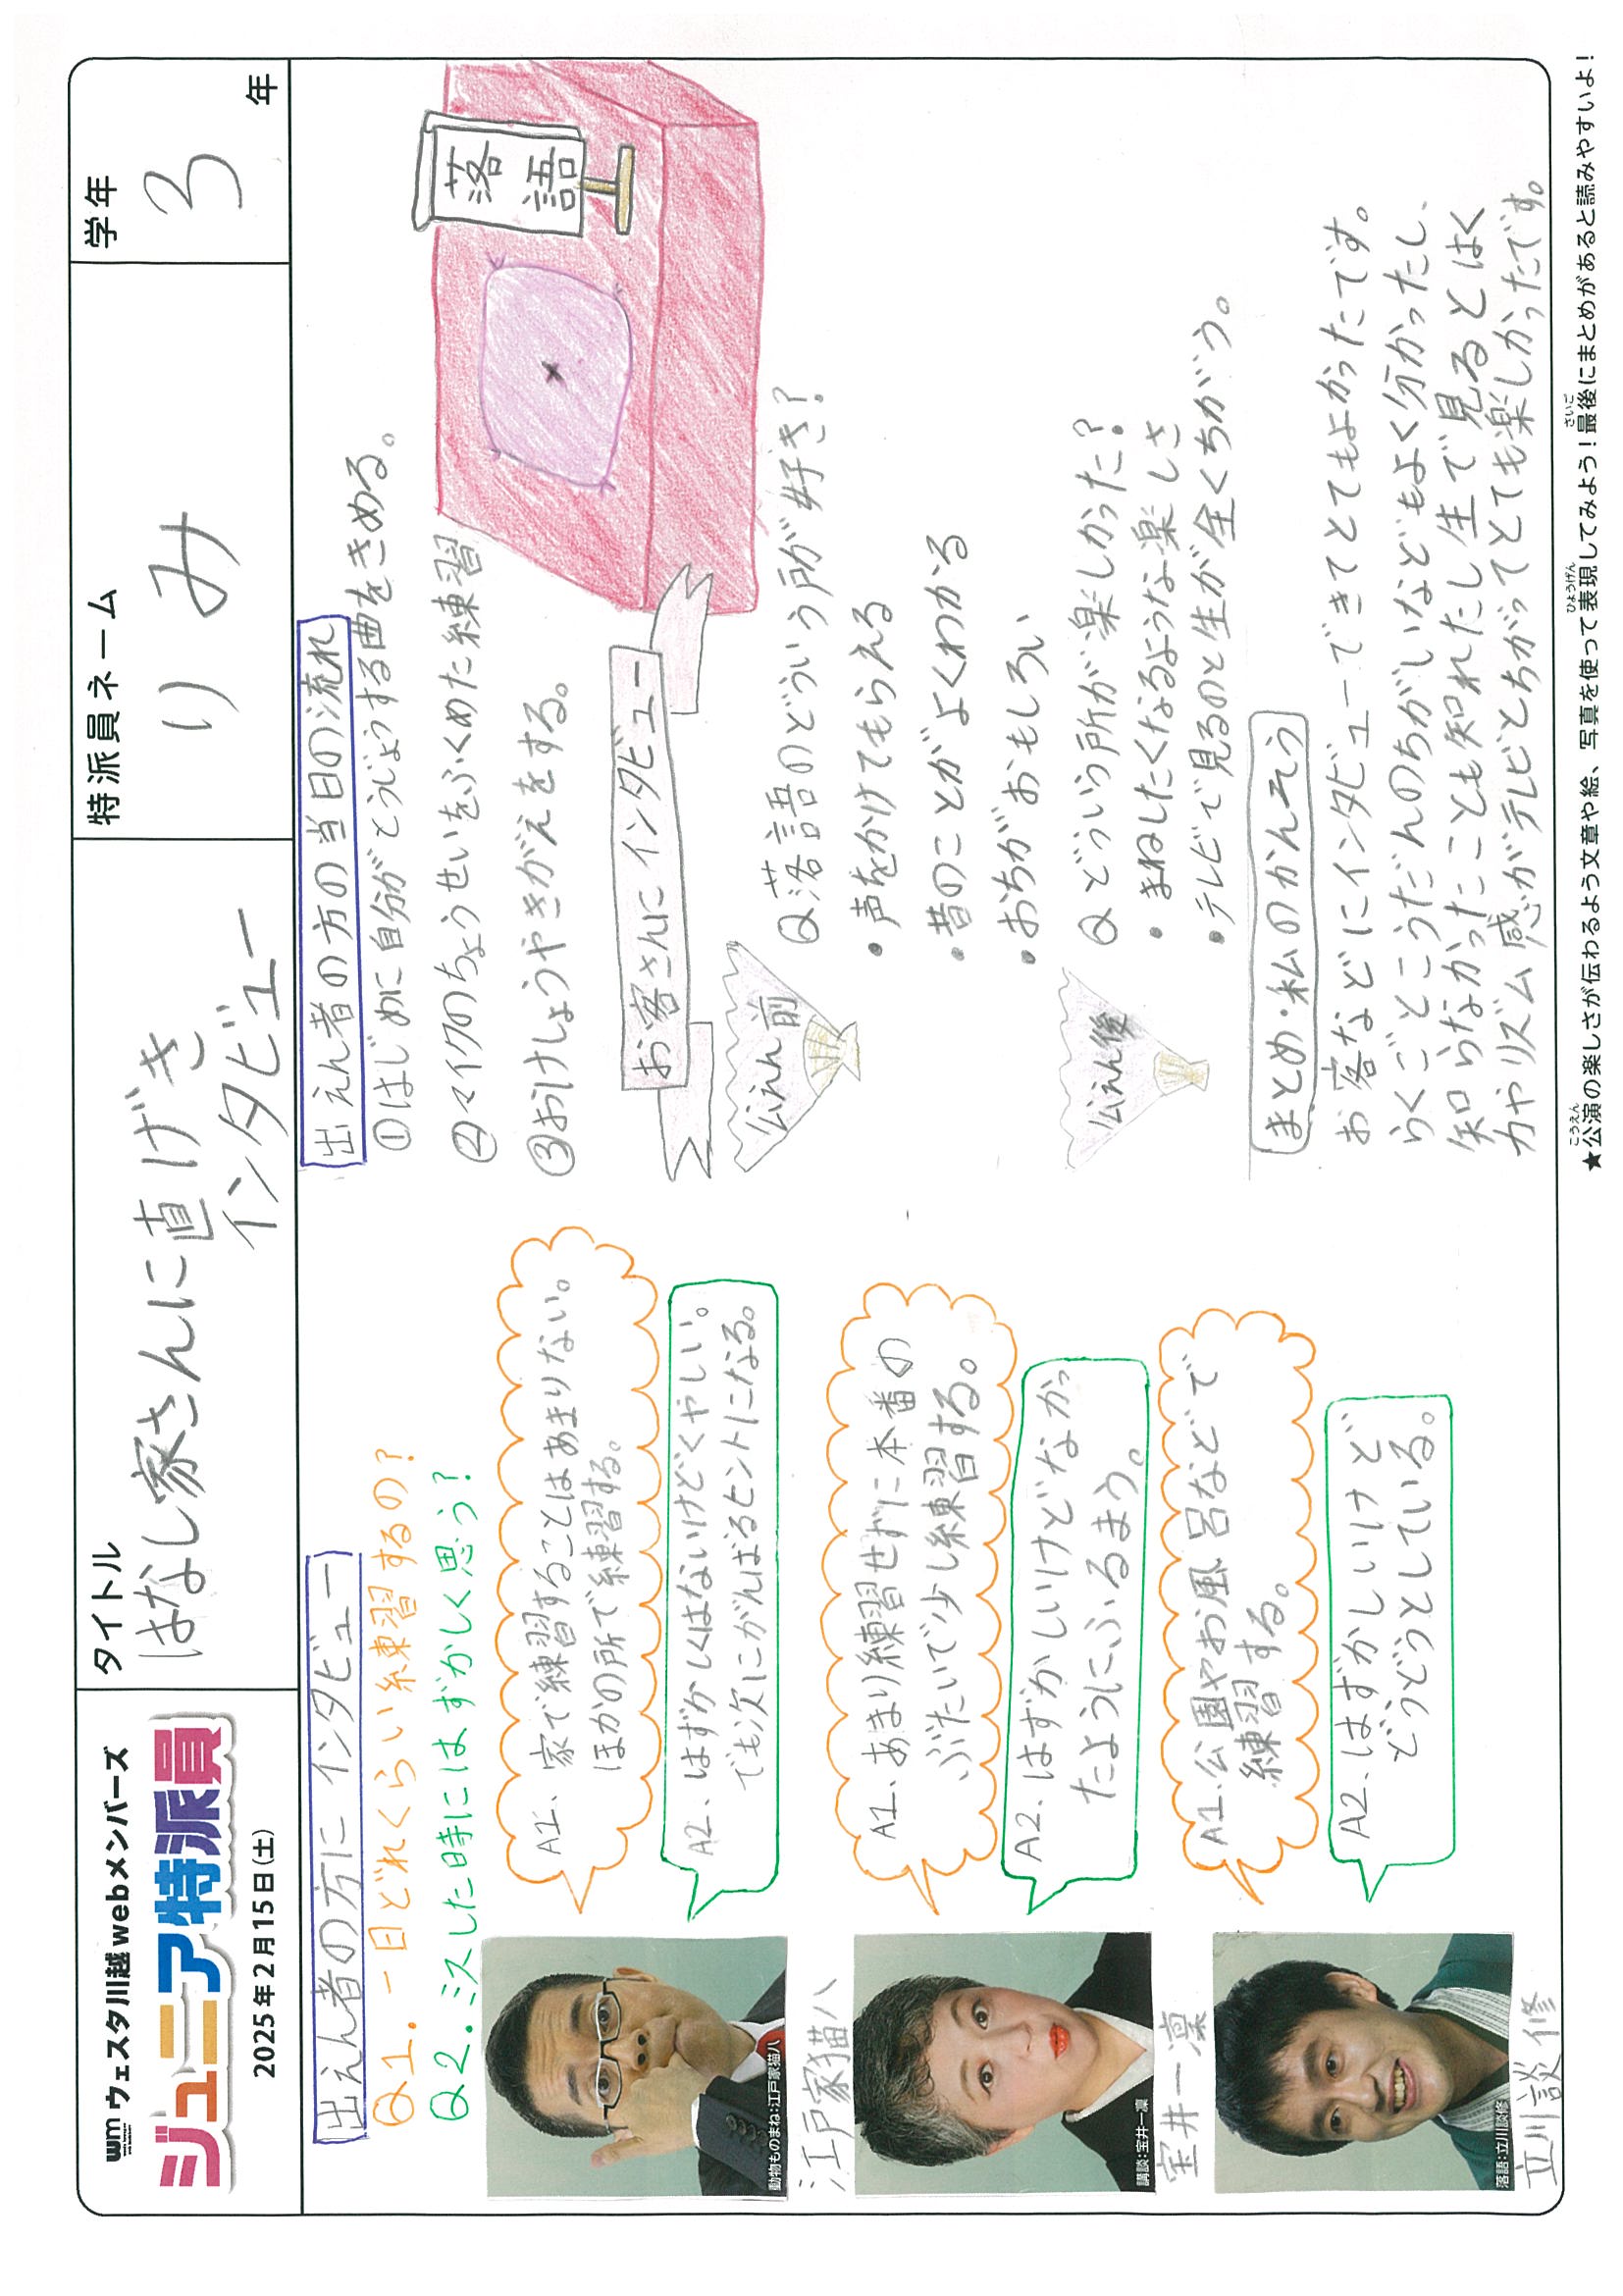 wm ウェスタ川越webメンバーズ
ジュニア特派員
2025年2月15日(土)
タイトル
はなし家さんに直げき
インタビュー
特派員ネーム
りみ
学年
3
年
出えん者の方に インタビュー
Q1. 一日どれくらい練習するの?
Q2. ミスした時にはずかしく思う?
動物ものまね:江戸家猫八
江戸家猫八
A1. 家で練習することはあまりない。
ほかの所で練習する。
A2. はずかしくはないけどくやしい。
でも次にがんばるヒントになる。
講談:宝井一凜
宝井一凜
A1. あまり練習せずに本番の
ぶたいで少し練習する。
A2. はずかしいけどなかっ
たようにふるまう。
落語:立川談修
立川談修
A1. 公園やお風呂などで
練習する。
A2. はずかしいけど
どうどうとしている。
出えん者の方の当日の流れ
①はじめに自分がとうじょうする曲をきめる。
②マイクのちょうせいをふくめた練習
③おけしょうやきがえをする。
落語
お客さんに インタビュー
公えん前
Q 落語のどういう所が好き?
・声をかけてもらえる
・昔のことがよくわかる
・おちがおもしろい
公えん後
Q どういう所が楽しかった?
・まねしたくなるような楽しさ
・テレビで見るのと生が全くちがう。
まとめ・私のかんそう
お客などにインタビューできてとてもよかったです。
らくごとこうだんのちがいなどもよく分かったし、
知らなかったことも知れたし生で見るとはく
力やリズム感がテレビとちがってとても楽しかったです。
★公演の楽しさが伝わるよう文章や絵、写真を使って表現してみよう!最後にまとめがあると読みやすいよ!